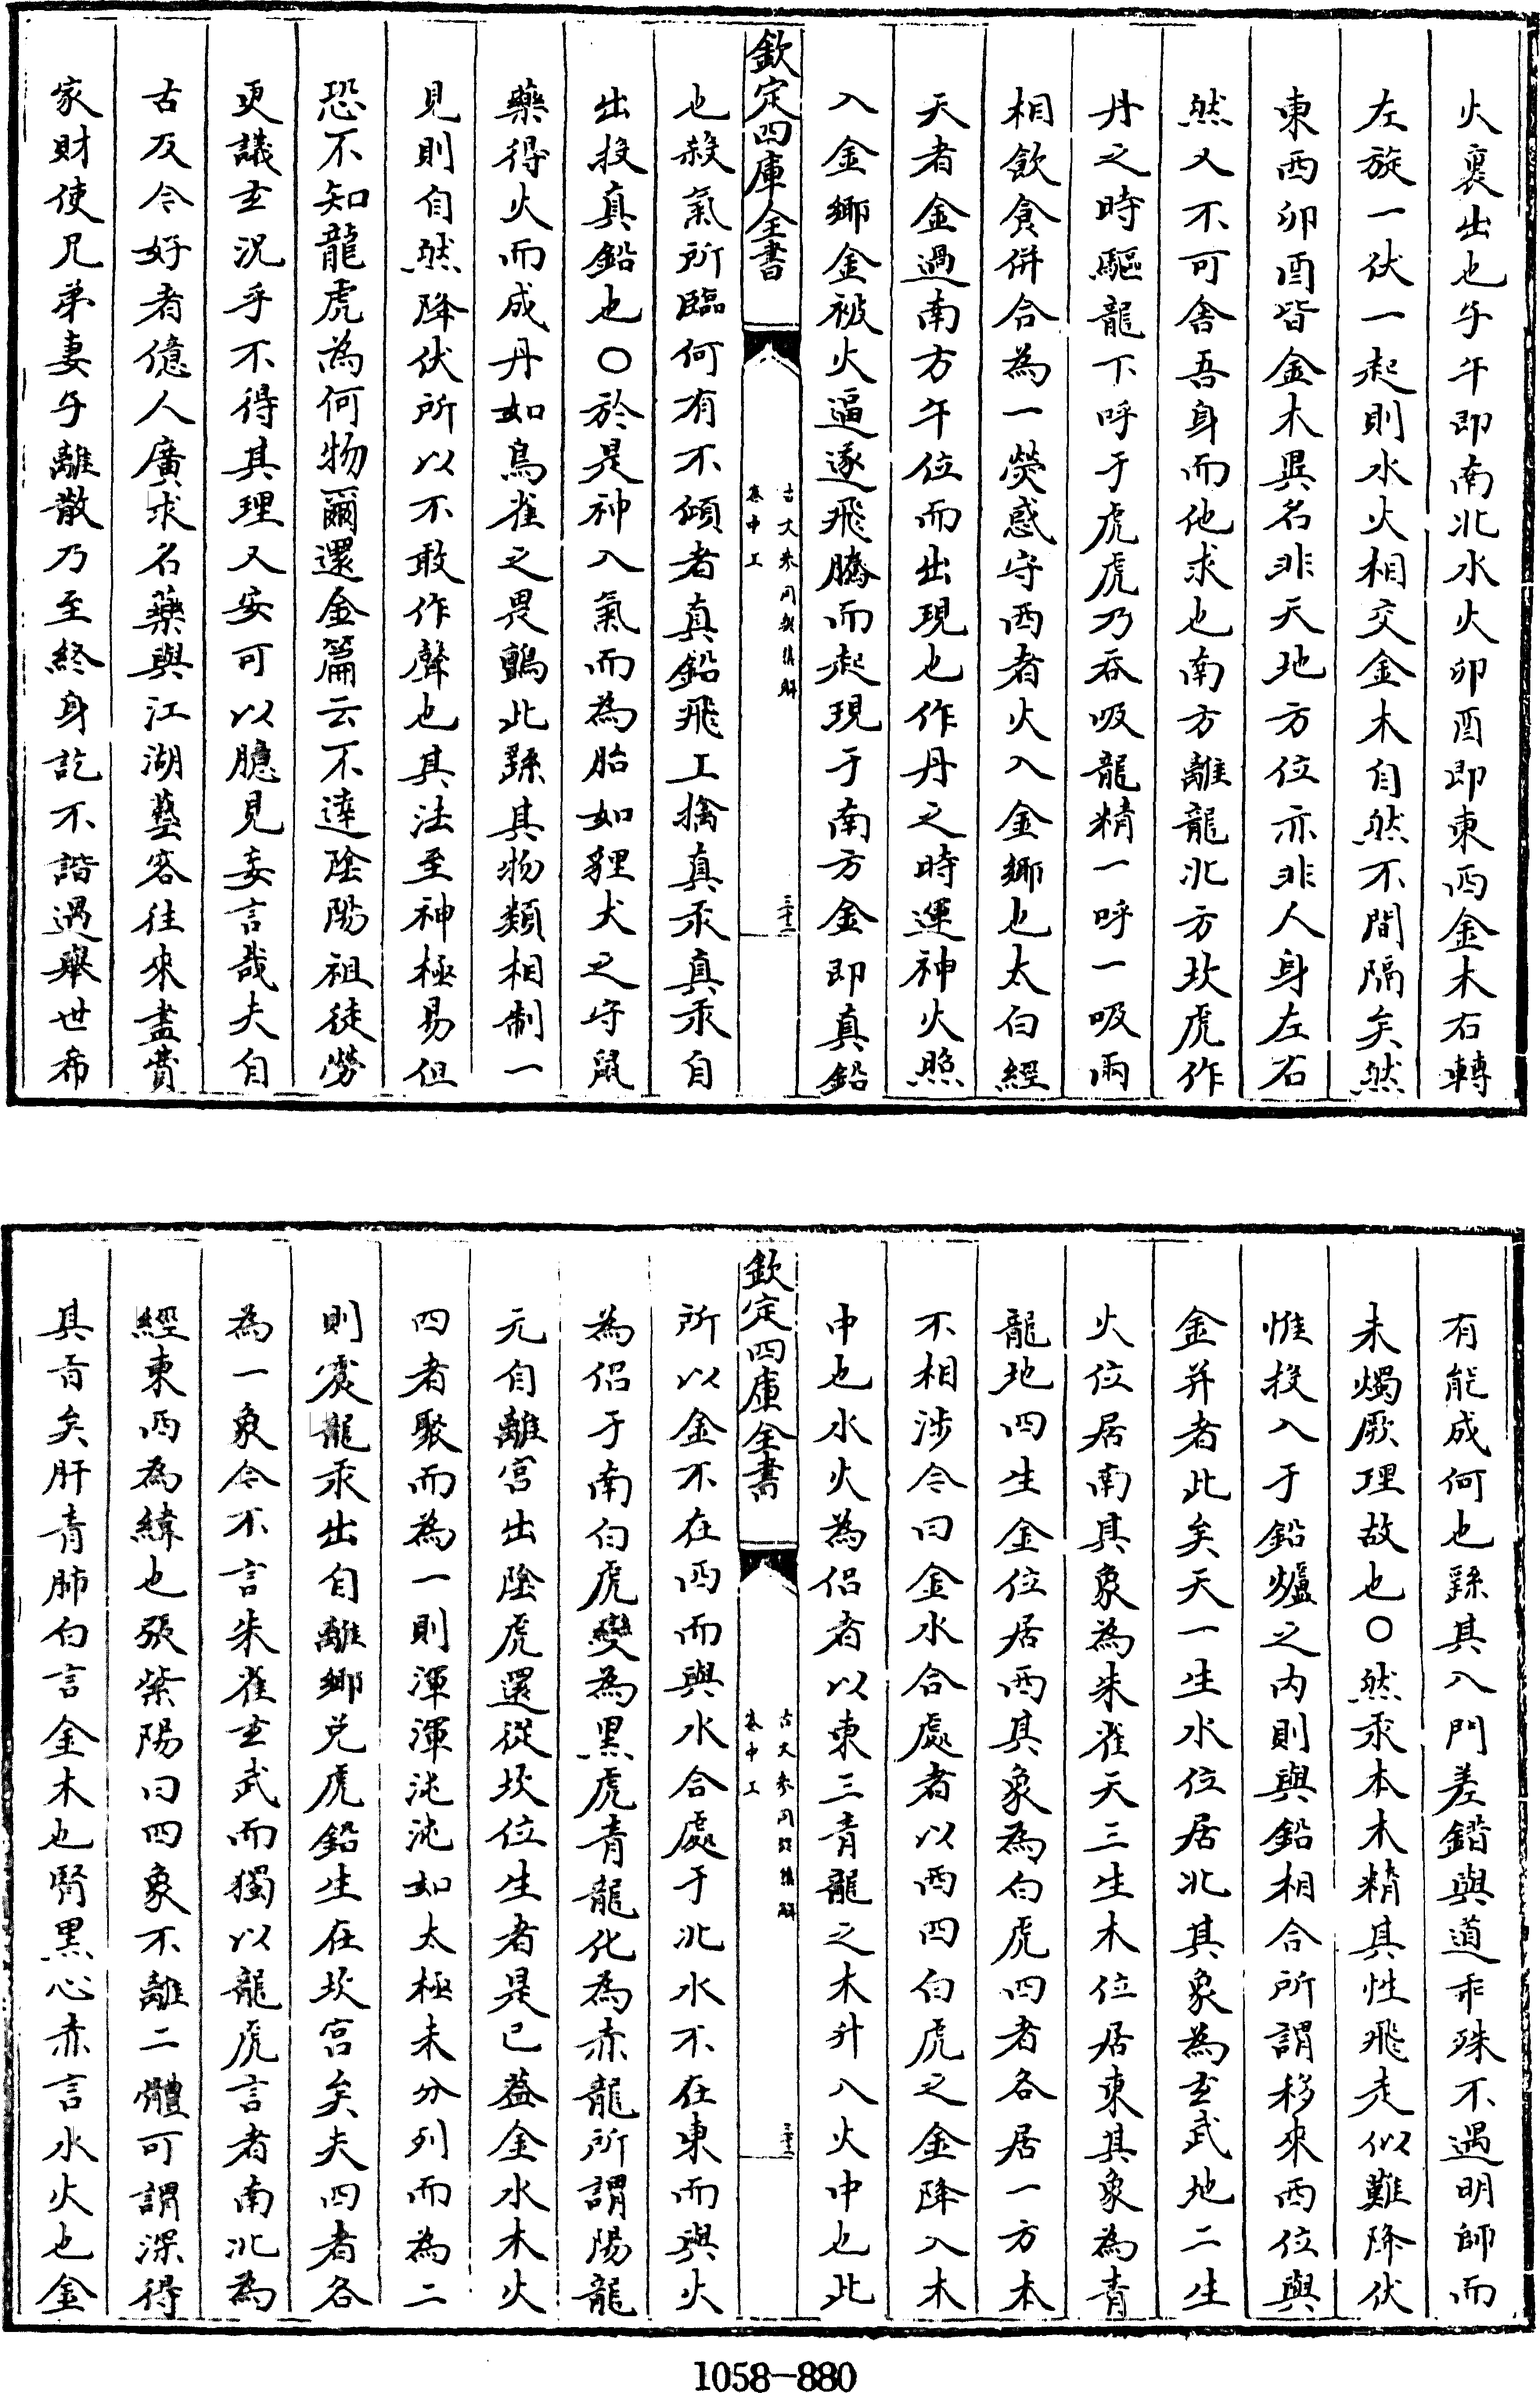 火裏出也子午即南北水火卯酉即東西金木右轉
左旋一伏一起則水火相交金木自然不間隔矣然
東西卯酉皆金木異名非天地方位亦非人身左右
然又不可舍吾身而他求也南方離龍北方坎虎作
丹之時驅龍下呼于虎虎乃吞吸龍精一呼一吸兩
相飲食併合為一熒惑守西者火入金鄉也太白經
天者金過南方午位而出現也作丹之時運神火照
入金鄉金被火逼遂飛騰而起現于南方金即真鉛
欽定四庫全書
古文參同契集解
卷中上
三十三
也殺氣所臨何有不傾者真鉛飛上擒真汞真汞自
出投真鉛也○於是神入氣而為胎如貍犬之守鼠
藥得火而成丹如鳥雀之畏鸇此繇其物類相制一
見則自然降伏所以不敢作聲也其法至神極易但
恐不知龍虎為何物爾還金篇云不達陰陽祖徒勞
更議玄況乎不得其理又安可以臆見妄言哉夫自
古及今好者億人廣求名藥與江湖藝客往來盡費
家財使兄弟妻子離散乃至終身訖不諧遇舉世希
有能成何也繇其入門差錯與道乖殊不遇明師而
未燭厥理故也○然汞本木精其性飛走似難降伏
惟投入于鉛爐之內則與鉛相合所謂移來西位與
金并者此矣天一生水位居北其象為玄武地二生
火位居南其象為朱雀天三生木位居東其象為青
龍地四生金位居西其象為白虎四者各居一方本
不相涉今曰金水合處者以西四白虎之金降入木
中也水火為侶者以東三青龍之木升入火中也此
欽定四庫全書
古文參同契集解
卷中上
三十三
所以金不在西而與水合處于北水不在東而與火
為侶于南白虎變為黑虎青龍化為赤龍所謂陽龍
元自離宮出陰虎還從坎位生者是已蓋金水木火
四者聚而為一則渾渾沌沌如太極未分列而為二
則震龍汞出自離鄉兌虎鉛生在坎宮矣夫四者各
為一象今不言朱雀玄武而獨以龍虎言者南北為
經東西為緯也張紫陽曰四象不離二體可謂深得
其旨矣肝青肺白言金木也腎黑心赤言水火也金
1058-880